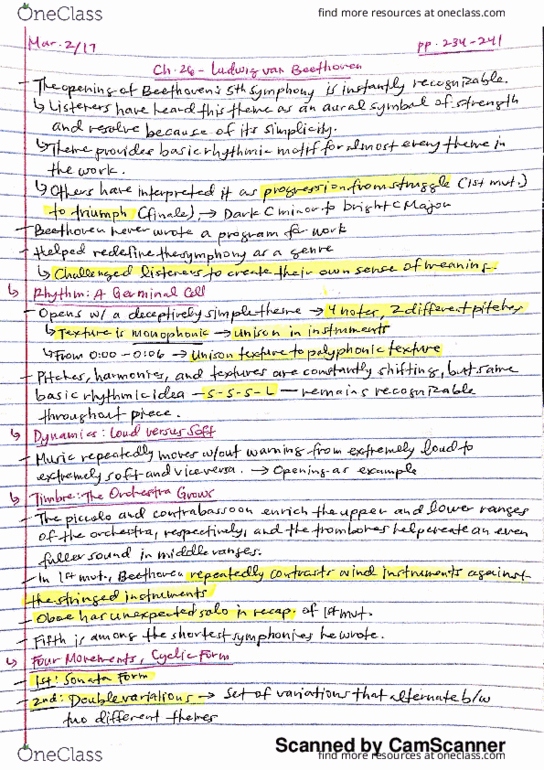 OneClass
find more resources at oneclass.com
Mar. 2/17
pp. 234-241
Ch. 26 - Ludwig van Beethoven
- The opening of Beethoven's 5th symphony is instantly recognizable.
↳ Listeners have heard this theme as an aural symbol of strength
and resolve because of its simplicity.
↳ Theme provides basic rhythmic motif for almost every theme in
the work.
↳ Others have interpreted it as progression from struggle (1st mvt.)
to triumph (finale), → Dark C minor to bright C Major
- Beethoven never wrote a program for work
- Helped redefine the symphony as a genre
↳ Challenged listeners to create their own sense of meaning.
↳ Rhythm: A Germinal Cell
- Opens w/ a deceptively simple theme → 4 notes, 2 different pitches
↳ Texture is monophonic → Unison in instruments
↳ From 0:00 - 0:06 → Unison texture to polyphonic texture
- Pitches, harmonies, and textures are constantly shifting, but same
basic rhythmic idea - S-S-S-L - remains recognizable
throughout piece.
↳ Dynamics: Loud versus Soft
- Music repeatedly moves w/out warning from extremely loud to
extremely soft and vice versa. → Opening as example
↳ Timbre: The Orchestra Grows
- The piccolo and contrabassoon enrich the upper and lower ranges
of the orchestra, respectively, and the trombones help create an even
fuller sound in middle ranges.
- In 1st mvt., Beethoven repeatedly contrasts wind instruments against
the stringed instruments
- Oboe has unexpected solo in recap. of 1st mvt.
- Fifth is among the shortest symphonies he wrote.
↳ Four Movements, Cyclic Form
- 1st: Sonata Form
- 2nd: Double variations → Set of variations that alternate b/w
two different themes
OneClass
Scanned by CamScanner
find more resources at oneclass.com